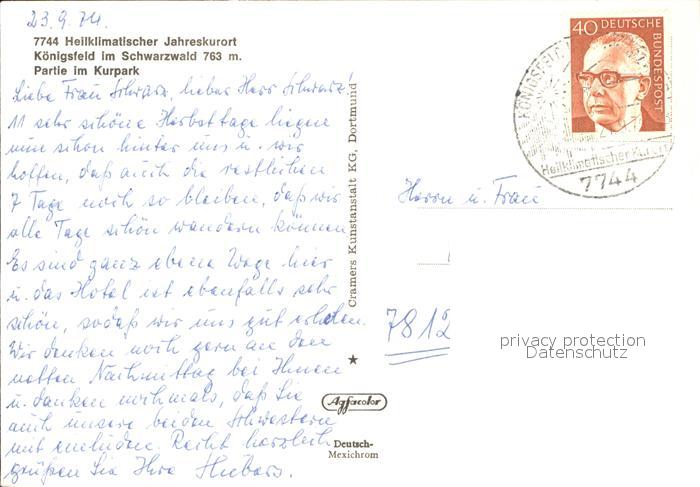 23.9.74.
7744 Heilklimatischer Jahreskurort
Königsfeld im Schwarzwald 763 m.
Partie im Kurpark
Liebe Frau Schwarz, lieber Herr Schwarz!
11 sehr schöne Herbsttage liegen
nun schon hinter uns u. wir
hoffen, daß auch die restlichen
7 Tage noch so bleiben, daß wir
alle Tage schön wandern können.
Es sind ganz ebene Wege hier
u. das Hotel ist ebenfalls sehr
schön, sodaß wir uns gut erholen.
Wir denken noch gern an den
netten Nachmittag bei Ihnen
u. danken nochmals, daß Sie
auch unsere beiden Schwestern
mit einluden. Recht herzlich
grüßen Sie Ihre Hubers.
Cramers Kunstanstalt KG, Dortmund
Agfacolor
Deutsch-
Mexichrom
40 DEUTSCHE
BUNDESPOST
KÖNIGSFELD
Heilklimatischer Kurort
7744
Herrn u. Frau
7812
privacy protection
Datenschutz